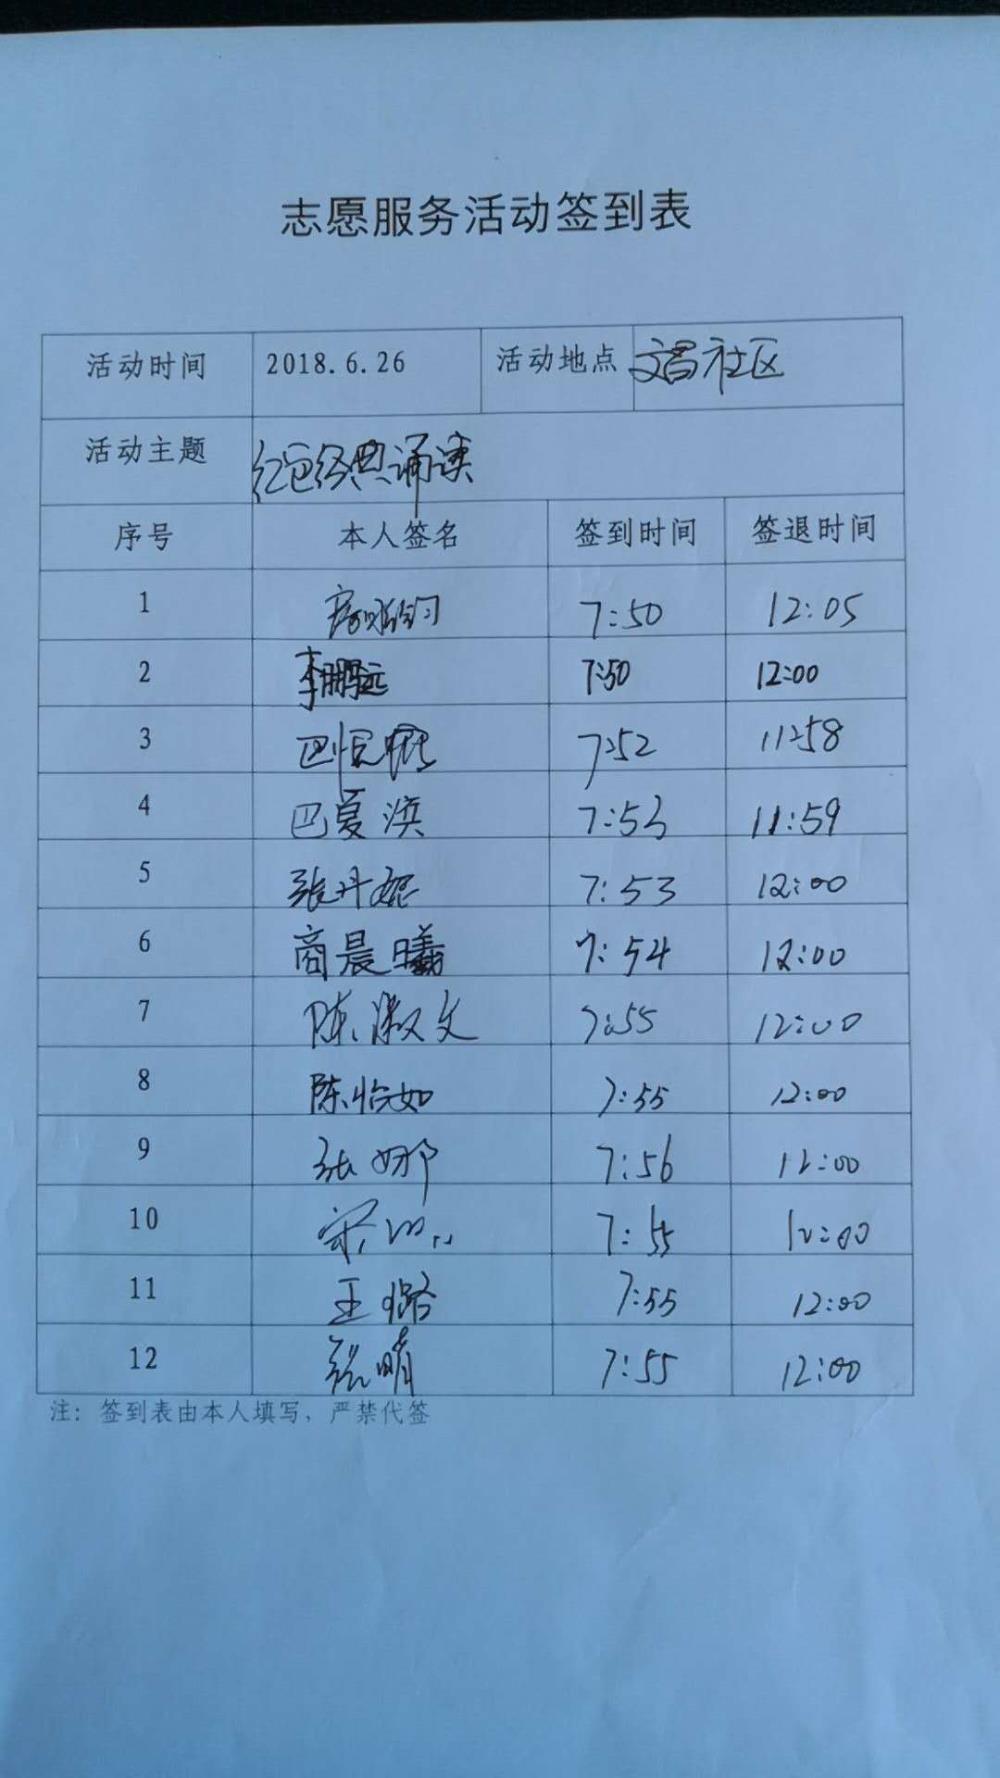 志愿服务活动签到表
活动时间 2018.6.26 活动地点 文昌社区
活动主题 红色经典诵读
序号 本人签名 签到时间 签退时间
1 7:50 12:05
2 李鹏远 7:50 12:00
3 巴恒 7:52 11:58
4 巴夏滨 7:53 11:59
5 张丹妮 7:53 12:00
6 商晨曦 7:54 12:00
7 陈淑文 7:55 12:00
8 陈怡如 7:55 12:00
9 张娜 7:56 12:00
10 宋 7:55 12:00
11 王璐 7:55 12:00
12 张晴 7:55 12:00
注: 签到表由本人填写，严禁代签